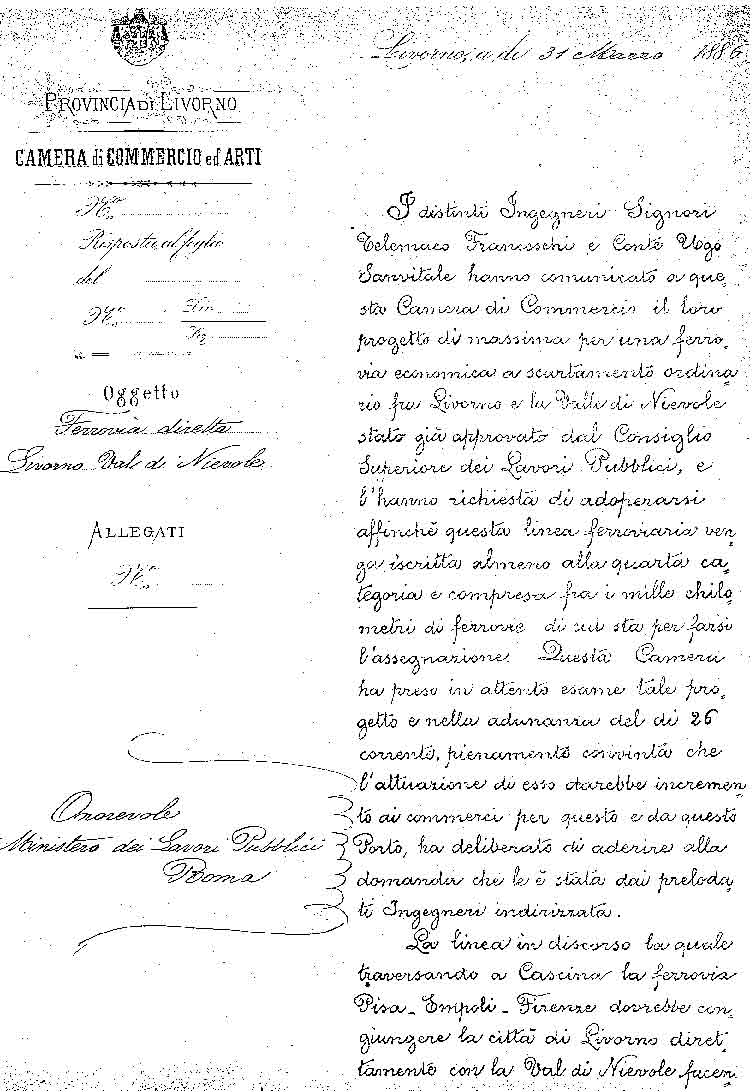 Livorno, a dì 31 Marzo 1886
PROVINCIA DI LIVORNO
CAMERA di COMMERCIO ed ARTI
N.o
Risposta al foglio
del
N.o
Oggetto
Ferrovia diretta
Livorno Val di Nievole
ALLEGATI
N.o
Onorevole
Ministero dei Lavori Pubblici
Roma
I distinti Ingegneri Signori
Telemaco Franceschi e Conte Ugo
Sanvitale hanno comunicato a que„
sta Camera di Commercio il loro
progetto di massima per una ferro„
via economica a scartamento ordina„
rio fra Livorno e la Valle di Nievole
stato già approvato dal Consiglio
Superiore dei Lavori Pubblici, e
l'hanno richiesta di adoperarsi
affinchè questa linea ferroviaria ven„
ga iscritta almeno alla quarta ca„
tegoria e compresa fra i mille chilo„
metri di ferrovie di cui sta per farsi
l'assegnazione. Questa Camera
ha preso in attento esame tale pro„
getto e nella adunanza del dì 26
corrente, pienamente convinta che
l'attivazione di esso darebbe incremen„
to ai commerci per questo e da questo
Porto, ha deliberato di aderire alla
domanda che le è stata dai preloda„
ti Ingegneri indirizzata.
La linea in discorso la quale
traversando a Cascina la ferrovia
Pisa - Empoli - Firenze dovrebbe con„
giungere la città di Livorno diret„
tamente con la Val di Nievole facen„